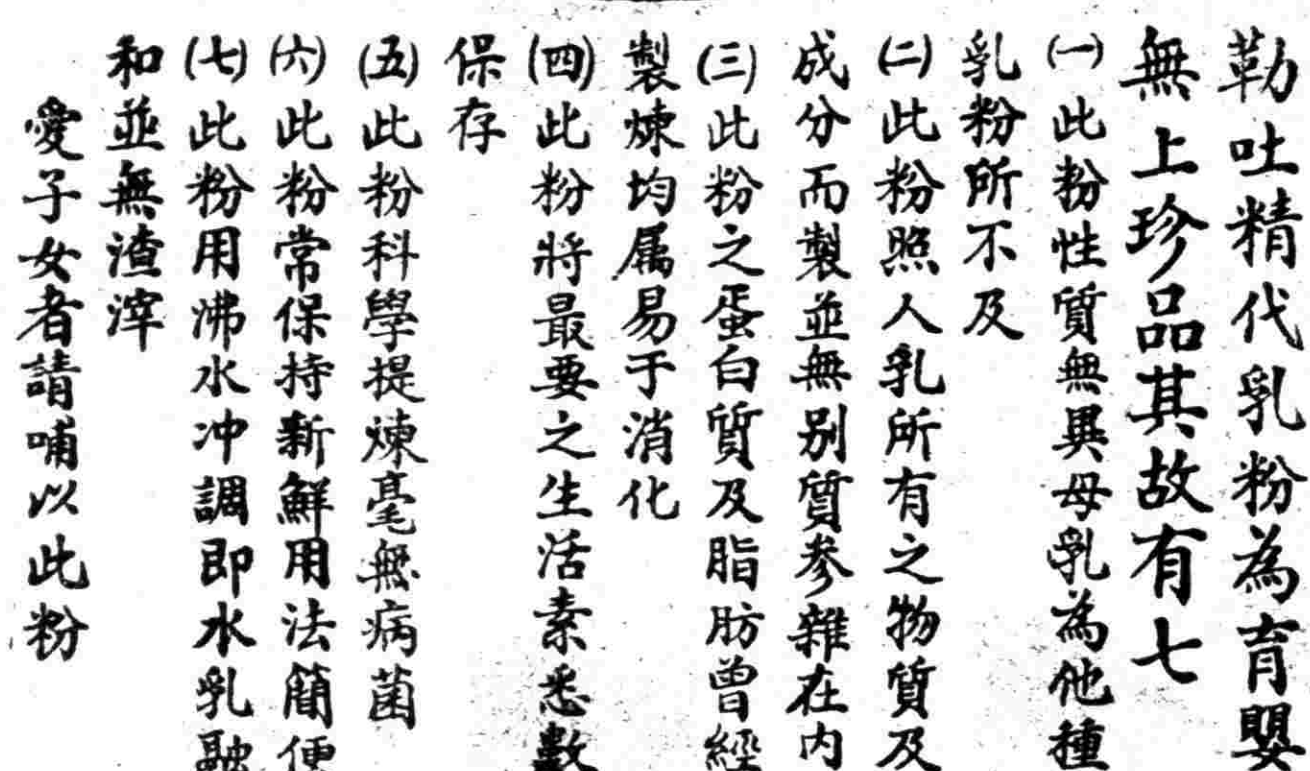 勒吐精代乳粉為育嬰
無上珍品其故有七
(一)此粉性質無異母乳為他種
乳粉所不及
(二)此粉照人乳所有之物質及
成分而製並無别質参雜在内
(三)此粉之蛋白質及脂肪曾經
製煉均属易于消化
(四)此粉將最要之生活素悉數
保存
(五)此粉科學提煉毫無病菌
(六)此粉常保持新鮮用法簡便
(七)此粉用沸水冲調即水乳融
和並無渣滓
愛子女者請哺以此粉